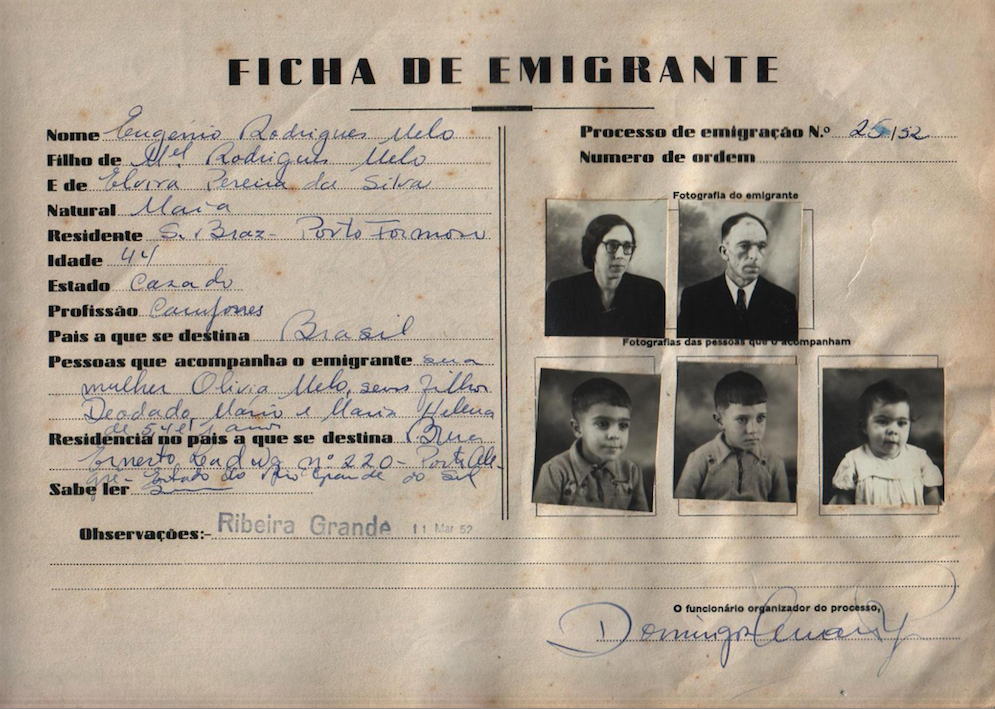 FICHA DE EMIGRANTE
Nome Eugénio Rodrigues Melo
Filho de Mel Rodrigues Melo
E de Elvira Pereira da Silva
Natural Maia
Residente S. Braz - Porto Formoso
Idade 44
Estado Casado
Profissão Campones
Pais a que se destina Brasil
Pessoas que acompanha o emigrante sua
mulher Olivia Melo, seus filhos
Deodado, Mario e Maria Helena
de 5, 4 e 1 anos
Residência no pais a que se destina Rua
Ernesto nº 220 - Porto Ale
gre - Estado do Rio Grande do Sul
Sabe ler
Observações:- Ribeira Grande 11 Mar 52
Processo de emigração N.º 25/52
Numero de ordem
Fotografia do emigrante
Fotografias das pessoas que o acompanham
O funcionário organizador do processo,
Domingos